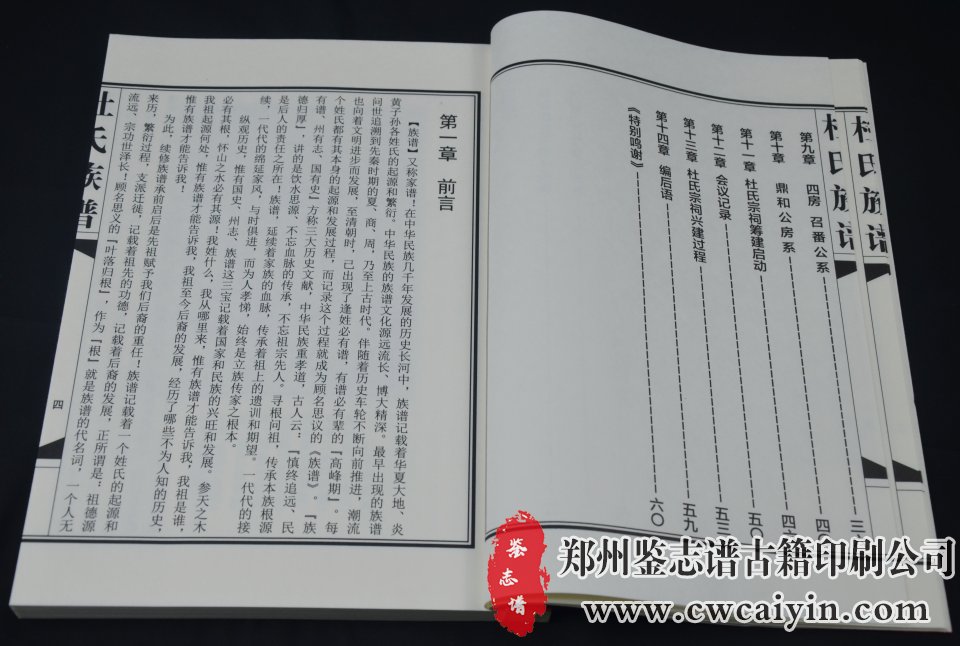 杜氏族谱
杜氏族谱
第九章 四房 召番公系------三
第十章 鼎和公房系------四
第十一章 杜氏宗祠筹建启动------四
第十二章 会议记录------五〇
第十三章 杜氏宗祠兴建过程------五三
第十四章 编后语------五九
《特别鸣谢》------六〇
第一章 前言
【族谱】又称家谱！在中华民族几千年发展的历史长河中，族谱记载着华夏大地、炎
黄子孙各姓氏的起源和繁衍。中华民族的族谱文化源远流长、博大精深。最早出现的族谱
问世追溯到先秦时期的夏、商、周，乃至上古时代。伴随着历史车轮不断向前推进，潮流
也向着文明进步而发展，至清朝时，已出现了逢姓必有谱，有谱必有辈的『高峰期』。每
个姓氏都有其本身的起源和发展过程，而记录这个过程就成为顾名思议的《族谱》。『族
有谱、州有志、国有史』方称三大历史文献，中华民族重孝道，古人云：『慎终追远、民
德归厚』，讲的是饮水思源、不忘血脉的传承，不忘祖宗先人。寻根问祖，传承本族根源
是后人的责任之所在！族谱，延续着家族的血脉，传承着祖上的遗训和期望。一代代的接
续，一代代的绵延家风，与时俱进，而为人孝悌，始终是立族传家之根本。
纵观历史，惟有国史、州志、族谱这三宝记载着国家和民族的兴旺和发展。参天之木
必有其根，怀山之水必有其源！我姓什么，我从哪里来，惟有族谱才能告诉我，我祖是谁，
我祖起源何处，惟有族谱才能告诉我，我祖至今后裔的发展，经历了哪些不为人知的历史，
惟有族谱才能告诉我！
为此，续修族谱承前启后是先祖赋予我们后裔的重任！族谱记载着一个姓氏的起源和
来历，繁衍过程，支派迁徙，记载着祖先的功德，记载着后裔的发展，正所谓是：祖德源
流远、宗功世泽长！顾名思义的『叶落归根』，作为『根』就是族谱的代名词，一个人无
杜氏族谱
四
鉴志谱
郑州鉴志谱古籍印刷公司
www.cwcaiyin.com